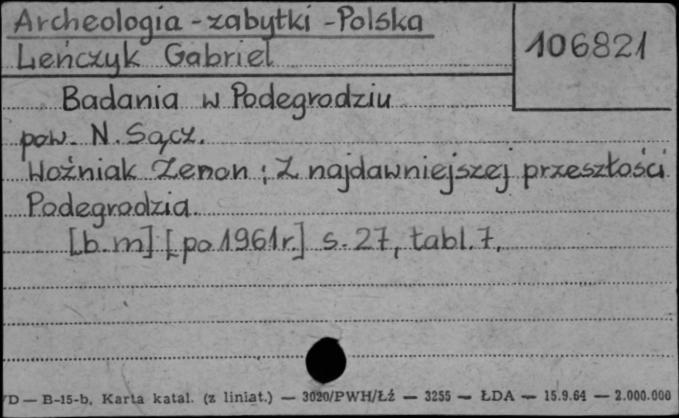 Archeologia - zabytki - Polska
Leńczyk Gabriel
106821
Badania w Podegrodziu
pow. N. Sącz.
Woźniak Zenon : Z najdawniejszej przeszłości
Podegrodzia.
[b.m] [po 1961r.] s. 27, tabl. 7.
D — B-15-b. Karta katal. (z liniat.) — 3020/PWH/Łź — 3255 — ŁDA — 15.9.64 — 2.000.000